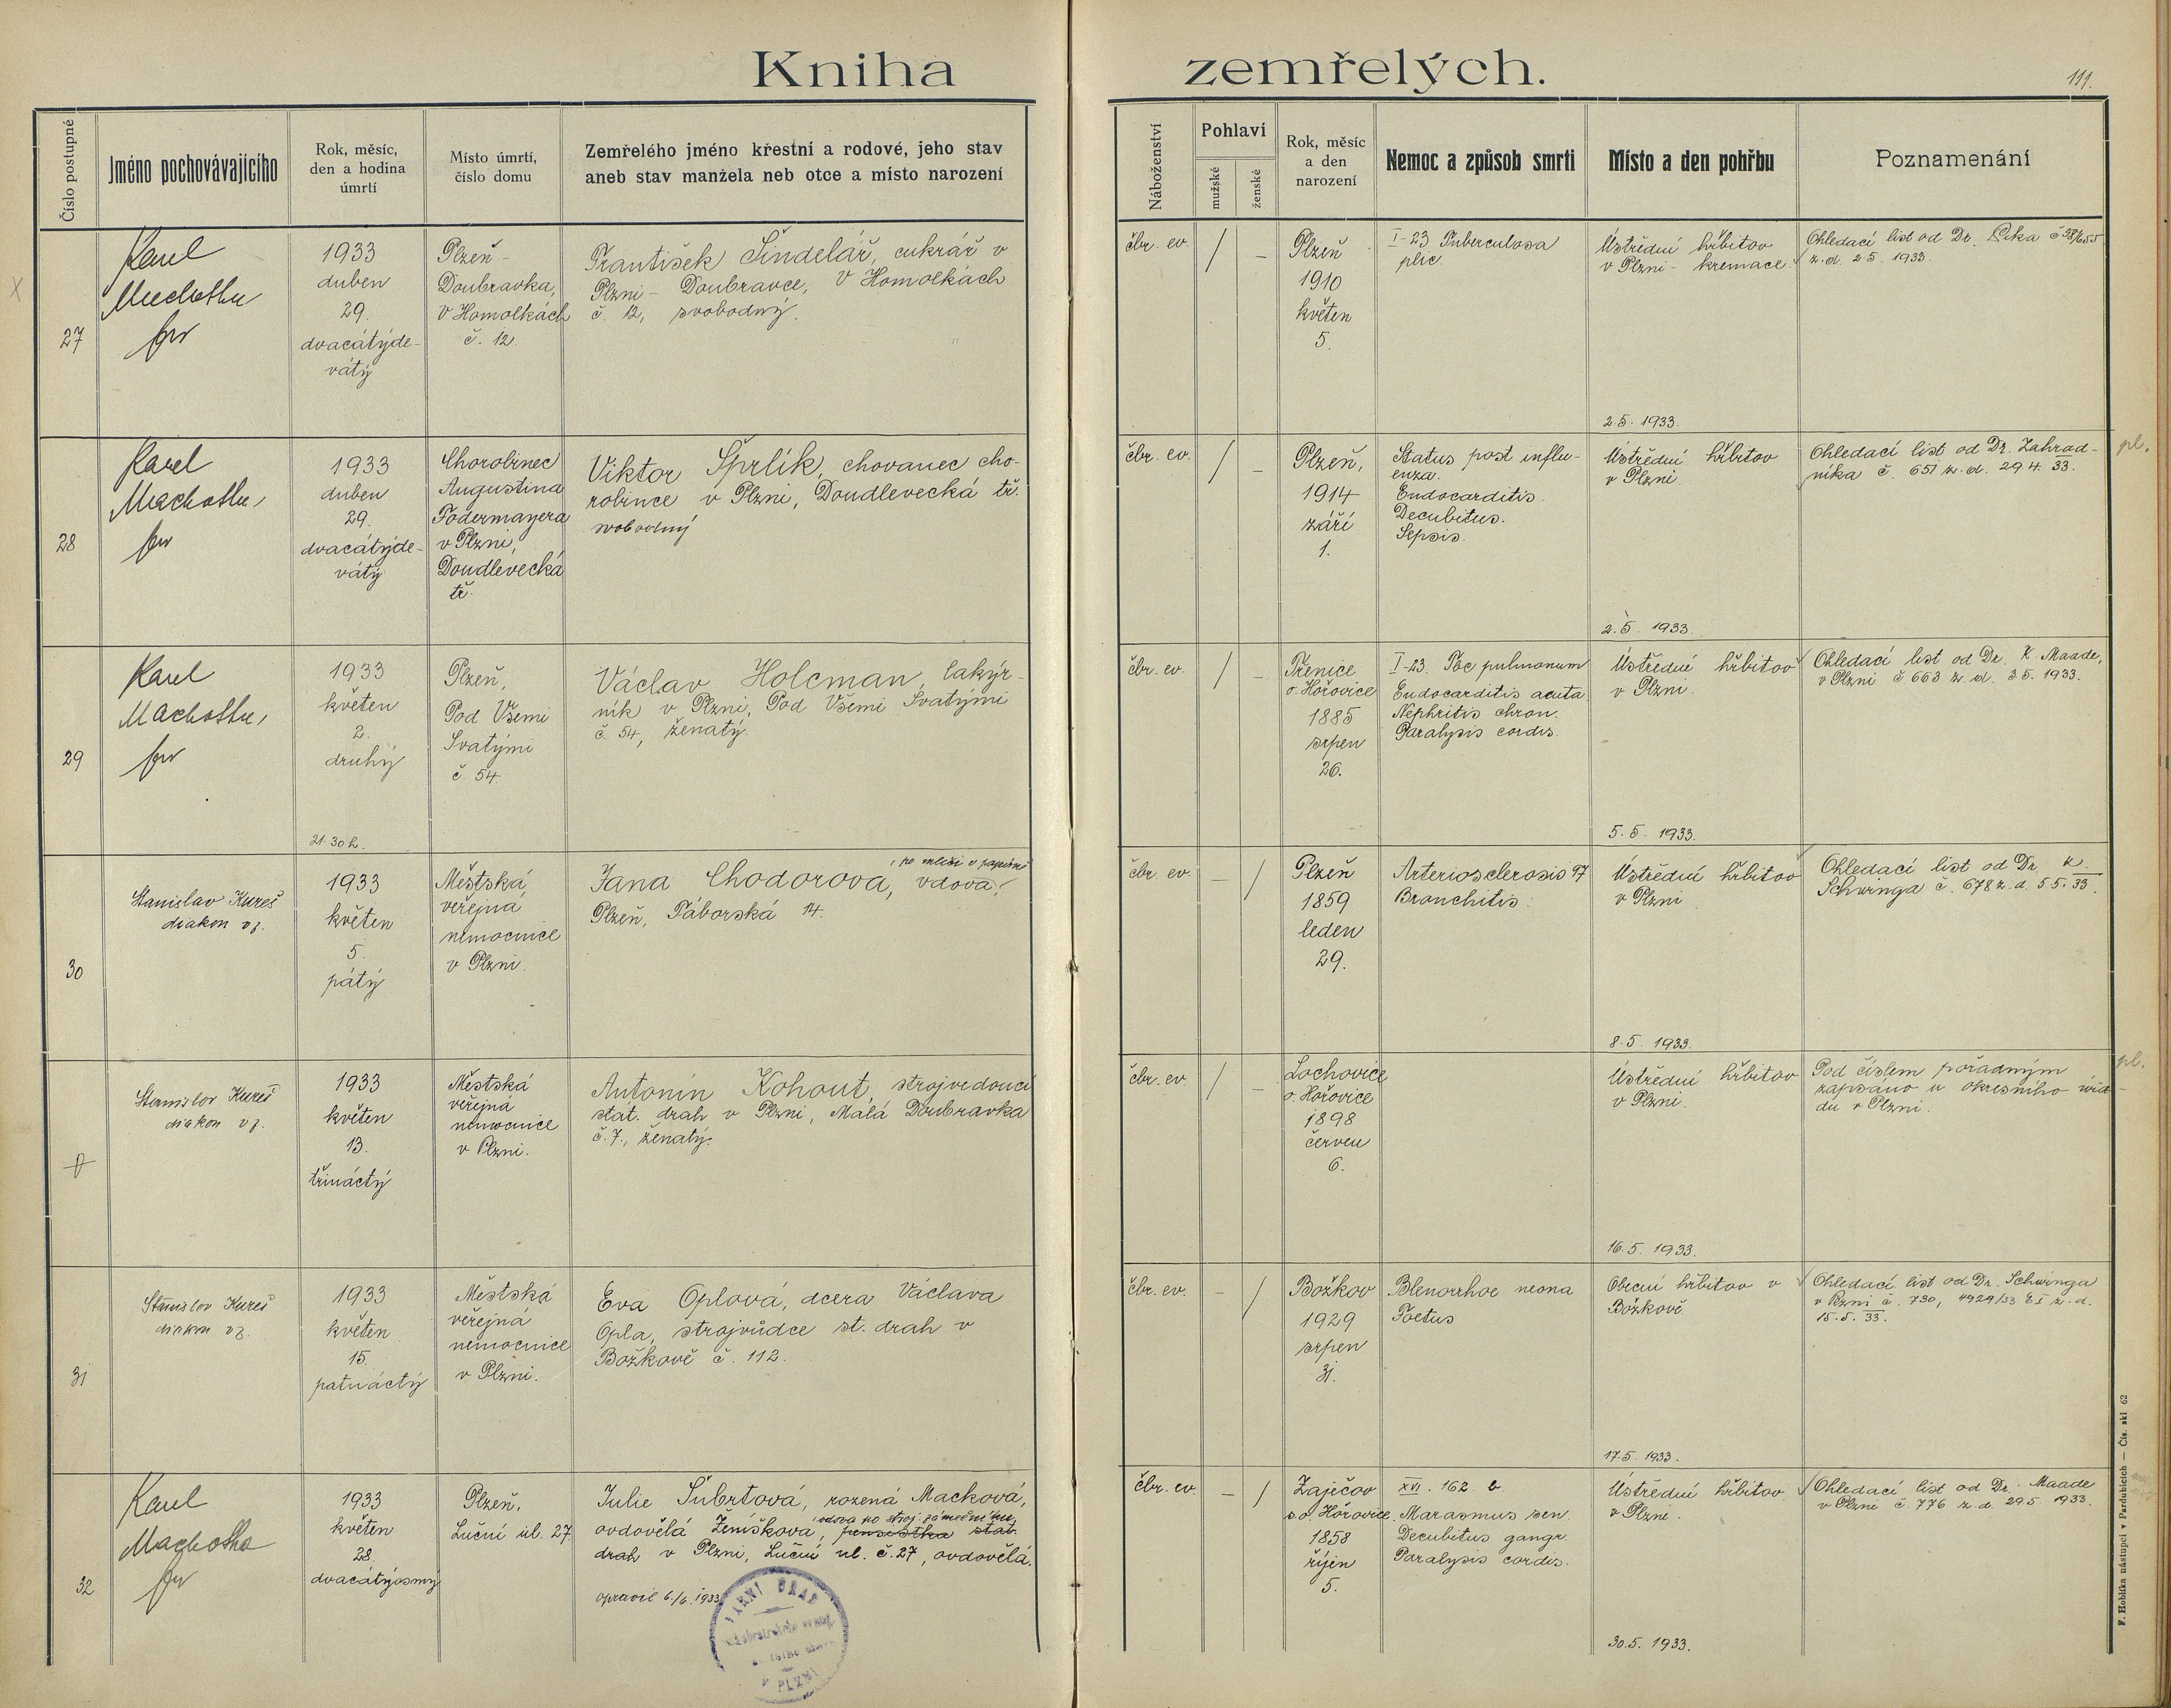 Kniha zemřelých.
111.
Číslo postupné
Jméno pochovávajícího
Rok, měsíc,
den a hodina
úmrtí
Místo úmrtí,
číslo domu
Zemřelého jméno křestní a rodové, jeho stav
aneb stav manžela neb otce a místo narození
Náboženství
Pohlaví
mužské
ženské
Rok, měsíc
a den
narození
Nemoc a způsob smrti
Místo a den pohřbu
Poznamenání
27
Karel
Machotka
1933
duben
29.
dvacátýde-
vátý
Plzeň -
Doubravka,
V Homolkách
č. 12.
František Šindelář, cukrář v
Plzni - Doubravce, V Homolkách
č. 12, svobodný.
čbr. ev.
/
-
Plzeň
1910
květen
5.
I-23 Tuberculosa
plic
Ústřední hřbitov
v Plzni - kremace.
2.5. 1933.
Ohledací list od Dr.
z. d. 2.5. 1933.
28
Karel
Machotka,
1933
duben
29.
dvacátýde-
vátý
Chorobinec
Augustina
Fodermayera
v Plzni,
Doudlevecká
tř.
Viktor Šprlík, chovanec cho-
robince v Plzni, Doudlevecká tř.
svobodný
čbr. ev.
/
-
Plzeň,
1914
září
1.
Status post influ-
enza.
Endocarditis.
Decubitus.
Sepsis.
Ústřední hřbitov
v Plzni.
2.5. 1933.
Ohledací list od Dr. Zahrad-
níka č. 651 z. d. 29.4. 33.
pl.
29
Karel
Machotka,
1933
květen
2.
druhý
21.30 h.
Plzeň,
Pod Všemi
Svatými
č. 54.
Václav Holcman, lakýr-
ník v Plzni, Pod Všemi Svatými
č. 54, ženatý.
čbr. ev.
/
-
o. Hořovice
1885
srpen
26.
I-23. Tbc pulmonum
Endocarditis acuta
Nephritis chron.
Paralysis cordis.
Ústřední hřbitov
v Plzni.
5.5. 1933.
Ohledací list od Dr. K. Maade,
v Plzni č. 663 z. d. 3.5. 1933.
30
Stanislav Kureš
diakon vz.
1933
květen
5.
pátý
Městská
veřejná
nemocnice
v Plzni.
Jana Chodorova, vdova,
Plzeň, Táborská 14.
čbr. ev.
-
/
Plzeň
1859
leden
29.
Arteriosclerosis 97
Bronchitis.
Ústřední hřbitov
v Plzni
8.5. 1933.
Ohledací list od Dr. K.
Schwinga č. 678 z. d. 5.5. 33.
Stanislav Kureš
diakon vz.
1933
květen
13.
třináctý
Městská
veřejná
nemocnice
v Plzni.
Antonín Kohout, strojvedoucí
stát. drah v Plzni, Malá Doubravka
č. 7., ženatý.
čbr. ev.
/
-
Lochovice
o. Hořovice
1898
červen
6.
Ústřední hřbitov
v Plzni.
16.5. 1933.
Pod číslem pořadným
zapsáno u okresního úřa-
du v Plzni.
pl.
31
Stanislav Kureš
diakon vz.
1933
květen
15.
patnáctý
Městská
veřejná
nemocnice
v Plzni.
Eva Oplová, dcera Václava
Opla, strojvůdce st. drah v
Božkově č. 112.
čbr. ev.
-
/
Božkov
1929
srpen
31.
Blenorrhoe neona
Foetus
Obecní hřbitov v
Božkově
17.5. 1933.
Ohledací list od Dr. Schwinga
v Plzni č. 730, 4929/33 z. d.
15.5. 33.
32
Karel
Machotka
1933
květen
28.
dvacátýosmý
Plzeň,
Luční ul. 27
Julie Šubrtová, rozená Macková,
vdova po stroj. zámečníku,
ovdovělá Ženíškova, pensistka stát.
drah v Plzni, Luční ul. č. 27, ovdovělá.
opravil 6./6. 1933
V PLZNI
čbr. ev.
-
/
Zaječov
s. o. Hořovice.
1858
říjen
5.
XVI. 162. b
Marasmus sen.
Decubitus gangr.
Paralysis cordis.
Ústřední hřbitov
v Plzni.
30.5. 1933.
Ohledací list od Dr. Maade
v Plzni č. 776 z. d. 29.5. 1933.
F. Hoblíka nástupci v Pardubicích — Čís. skl. 62